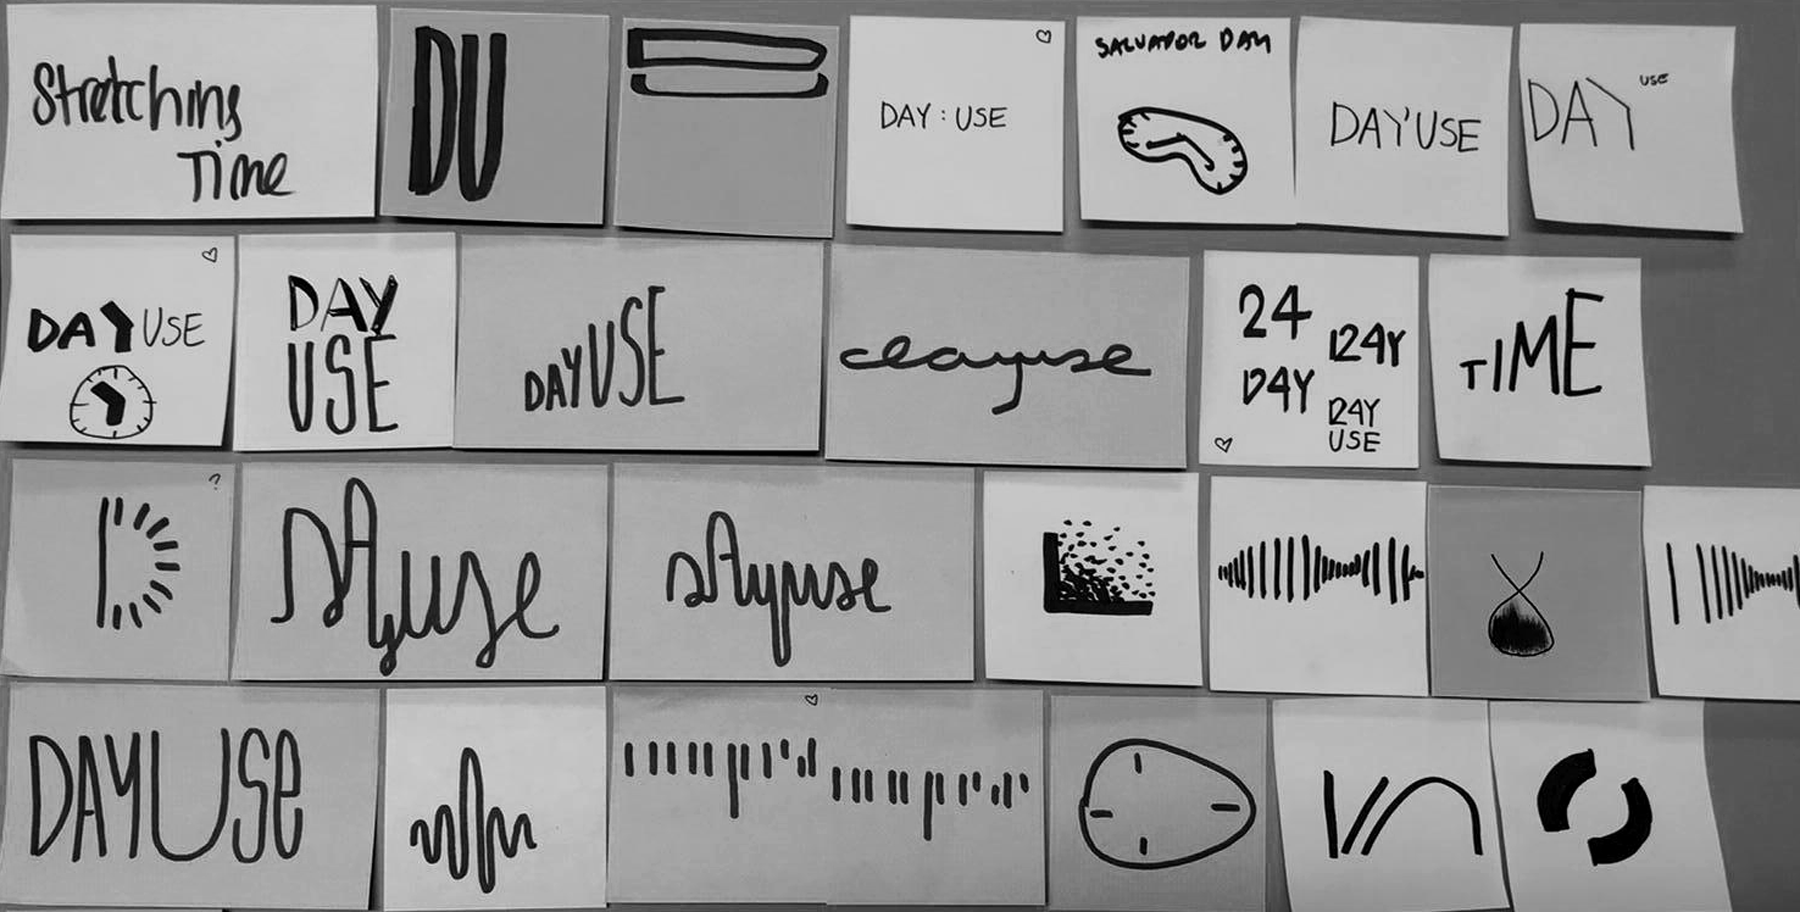 Stretching
Time
DU
DAY : USE
SALVADOR DALI
DAY'USE
DAY USE
DAYUSE
DAY
USE
DAYUSE
dayuse
24
124Y
D4Y
124Y
USE
TIME
?
dAyuse
dAyuse
DAYUSe